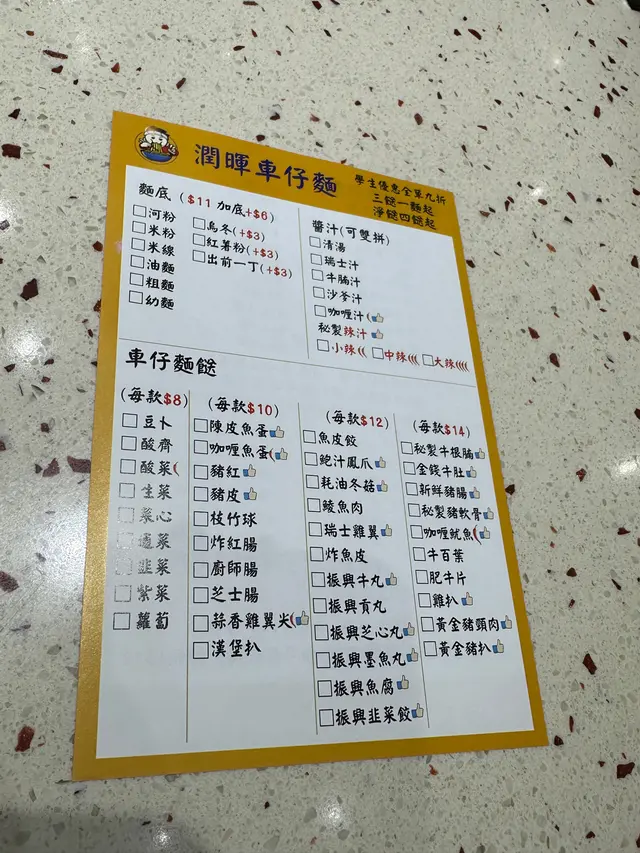 潤暉車仔麵
學生優惠全單九折
三餸一麵起
淨餸四餸起
麵底 ($11 加底+$6)
□河粉
□米粉
□米線
□油麵
□粗麵
□幼麵
□烏冬(+$3)
□紅薯粉(+$3)
□出前一丁(+$3)
醬汁(可雙拼)
□清湯
□瑞士汁
□牛腩汁
□沙爹汁
□咖喱汁
秘製辣汁
□小辣 □中辣 □大辣
車仔麵餸
(每款$8)
□豆卜
□酸齋
□酸菜
□生菜
□菜心
□通菜
□韮菜
□紫菜
□蘿蔔
(每款$10)
□陳皮魚蛋
□咖喱魚蛋
□豬紅
□豬皮
□枝竹球
□炸紅腸
□廚師腸
□芝士腸
□蒜香雞翼尖
□漢堡扒
(每款$12)
□魚皮餃
□鮑汁鳳爪
□耗油冬菇
□鯪魚肉
□瑞士雞翼
□炸魚皮
□振興牛丸
□振興貢丸
□振興芝心丸
□振興墨魚丸
□振興魚腐
□振興韭菜餃
(每款$14)
□秘製牛根腩
□金錢牛肚
□新鮮豬腸
□秘製豬軟骨
□咖喱魷魚
□牛百葉
□肥牛片
□雞扒
□黃金豬頸肉
□黃金豬扒